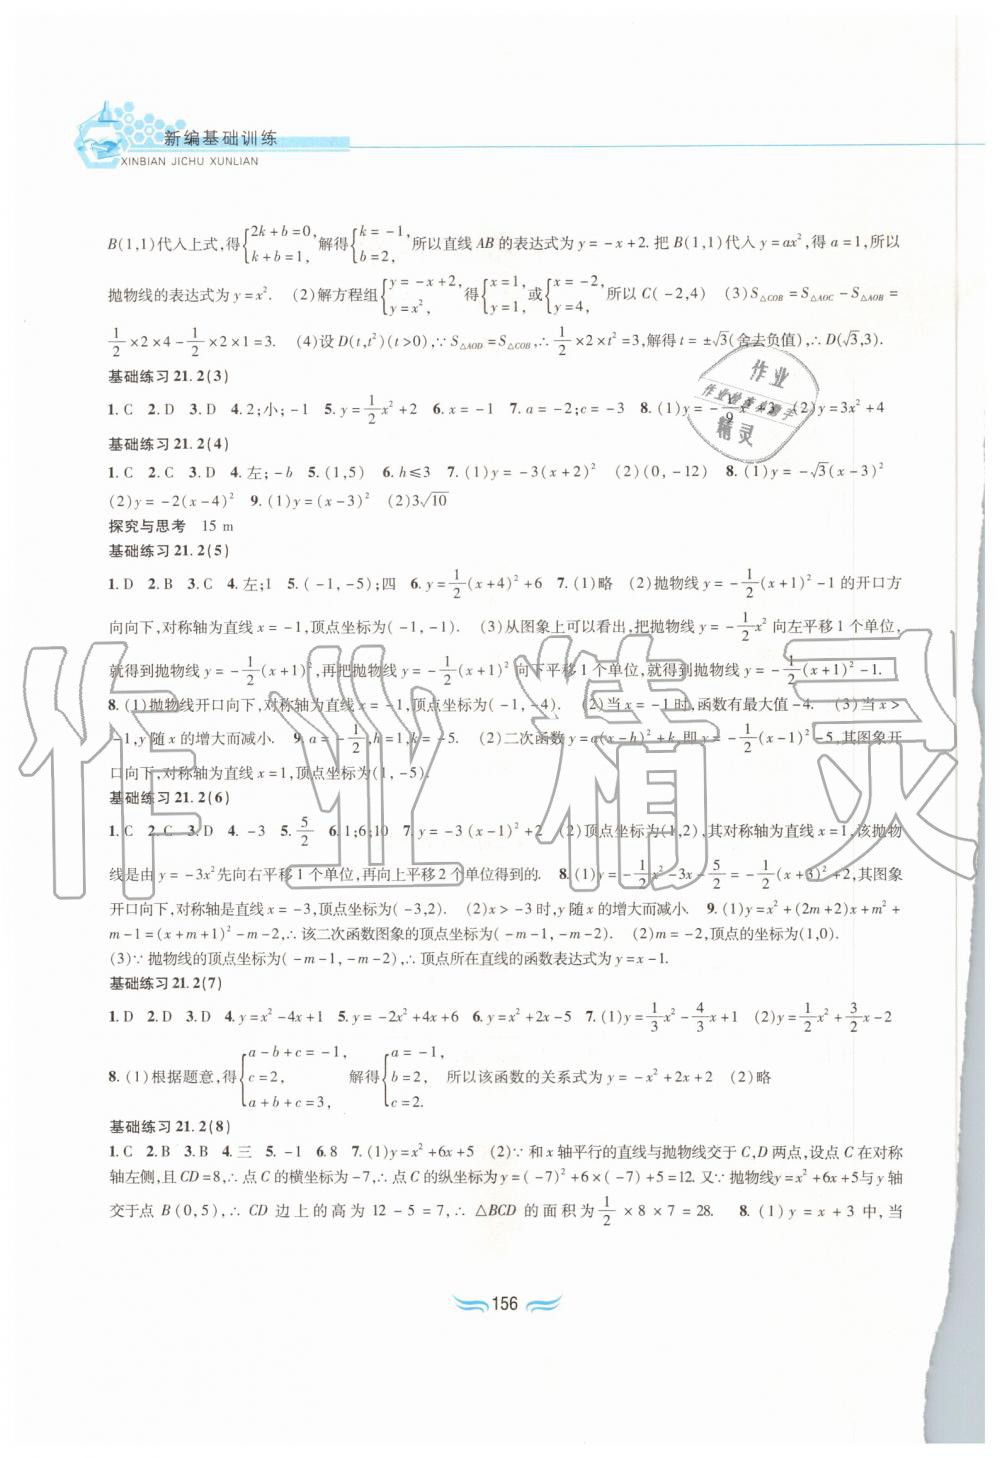 新编基础训练
XINBIAN JICHU XUNLIAN
B(1,1)代入上式,得{2k+b=0, k+b=1, 解得{k=-1, b=2, 所以直线 AB 的表达式为 y=-x+2. 把 B(1,1)代入 y=ax²,得 a=1,所以
抛物线的表达式为 y=x². (2)解方程组{y=-x+2, y=x², 得{x=1, y=1, 或{x=-2, y=4, 所以 C(-2,4) (3) S△COB=S△AOC-S△AOB=
1/2×2×4-1/2×2×1=3. (4)设 D(t,t²)(t>0),∵S△AOD=S△COB,∴1/2×2×t²=3,解得 t=±√3(舍去负值),∴D(√3,3).
基础练习 21.2(3)
1. C 2. D 3. D 4. 2;小;-1 5. y=1/2x²+2 6. x=-1 7. a=-2;c=-3 8. (1)y=-1/9x²+3 (2)y=3x²+4
基础练习 21.2(4)
1. C 2. C 3. D 4. 左;-b 5. (1,5) 6. h≤3 7. (1)y=-3(x+2)² (2)(0,-12) 8. (1)y=-√3(x-3)²
(2)y=-2(x-4)² 9. (1)y=(x-3)² (2)3√10
探究与思考 15 m
基础练习 21.2(5)
1. D 2. B 3. C 4. 左;1 5. (-1,-5);四 6. y=1/2(x+4)²+6 7. (1)略 (2)抛物线 y=-1/2(x+1)²-1 的开口方
向向下,对称轴为直线 x=-1,顶点坐标为(-1,-1). (3)从图象上可以看出,把抛物线 y=-1/2x² 向左平移 1 个单位,
就得到抛物线 y=-1/2(x+1)²,再把抛物线 y=-1/2(x+1)² 向下平移 1 个单位,就得到抛物线 y=-1/2(x+1)²-1.
8. (1)抛物线开口向下,对称轴为直线 x=-1,顶点坐标为(-1,-4). (2)当 x=-1 时,函数有最大值-4. (3)当 x>
-1,y 随 x 的增大而减小. 9. a=-1/2,h=1,k=-5. (2)二次函数 y=a(x-h)²+k,即 y=-1/2(x-1)²-5,其图象开
口向下,对称轴为直线 x=1,顶点坐标为(1,-5).
基础练习 21.2(6)
1. C 2. C 3. D 4. -3 5. 5/2 6. 1;6;10 7. y=-3(x-1)²+2 (2)顶点坐标为(1,2),其对称轴为直线 x=1,该抛物
线是由 y=-3x²先向右平移 1 个单位,再向上平移 2 个单位得到的. 8. (1)y=-1/2x²-3x-5/2=-1/2(x+3)²+2,其图象
开口向下,对称轴是直线 x=-3,顶点坐标为(-3,2). (2)x>-3 时,y 随 x 的增大而减小. 9. (1)y=x²+(2m+2)x+m²+
m-1=(x+m+1)²-m-2,∴该二次函数图象的顶点坐标为(-m-1,-m-2). (2)m=-2,顶点的坐标为(1,0).
(3)∵抛物线的顶点坐标为(-m-1,-m-2),∴顶点所在直线的函数表达式为 y=x-1.
基础练习 21.2(7)
1. D 2. D 3. D 4. y=x²-4x+1 5. y=-2x²+4x+6 6. y=x²+2x-5 7. (1)y=1/3x²-4/3x+1 (2)y=1/2x²+3/2x-2
8. (1)根据题意,得{a-b+c=-1, c=2, a+b+c=3, 解得{a=-1, b=2, c=2. 所以该函数的关系式为 y=-x²+2x+2 (2)略
基础练习 21.2(8)
1. C 2. B 3. B 4. 三 5. -1 6. 8 7. (1)y=x²+6x+5 (2)∵和 x 轴平行的直线与抛物线交于 C,D 两点,设点 C 在对称
轴左侧,且 CD=8,∴点 C 的横坐标为-7,∴点 C 的纵坐标为 y=(-7)²+6×(-7)+5=12. 又∵抛物线 y=x²+6x+5 与 y 轴
交于点 B(0,5),∴CD 边上的高为 12-5=7,∴△BCD 的面积为 1/2×8×7=28. 8. (1)y=x+3 中,当
156
作业精灵
作业
精灵